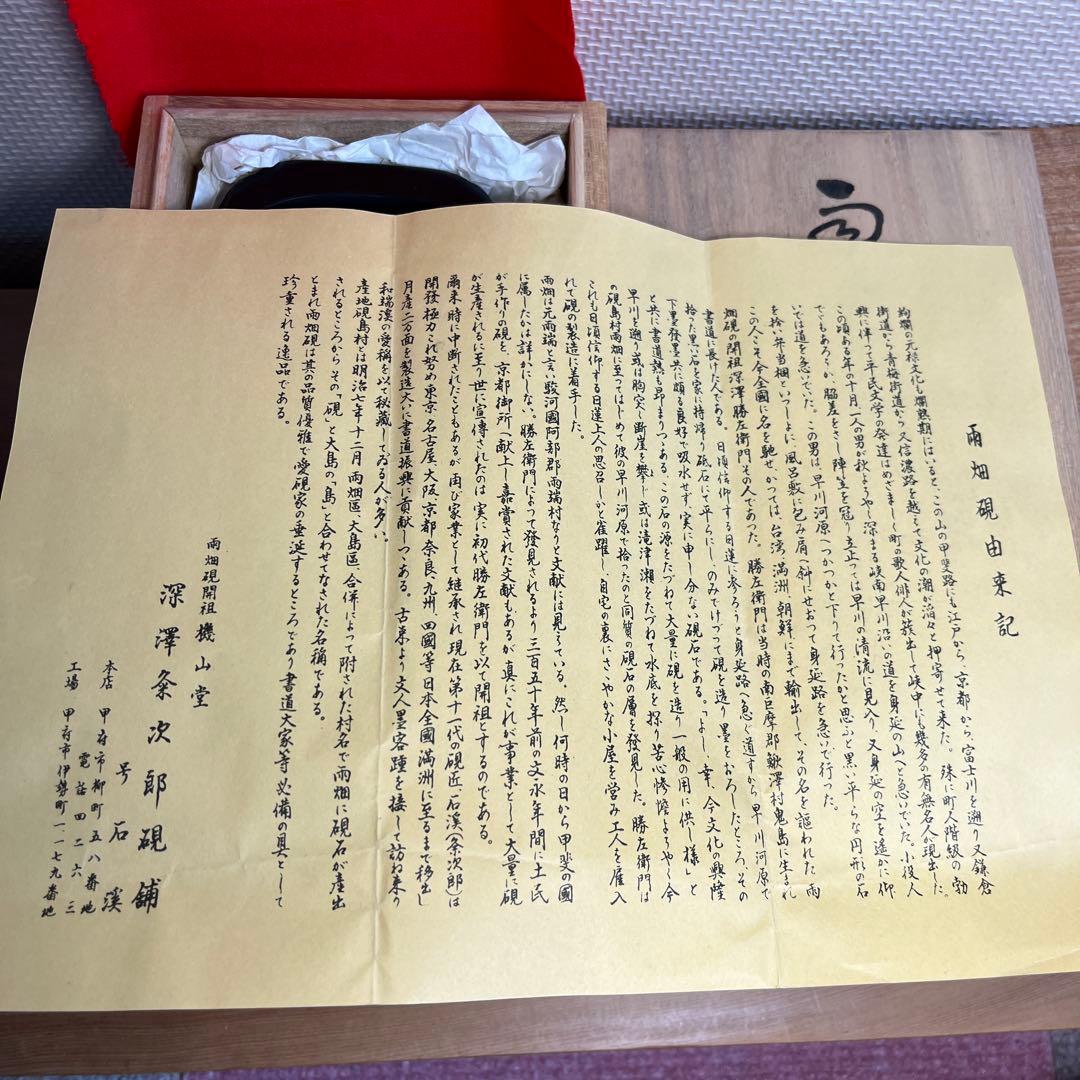 雨畑硯由来記
絢爛の元禄文化も爛熟期にはいると、この山の甲斐路にも江戸から、京都から、富士川を遡り又鎌倉
街道から青梅街道から又信濃路を越えて文化の潮が滔々と押寄せて来た。殊に町人階級の勃
興に伴って平民文学の発達はめざましく町の歌人俳人が簇出して峡中にも幾多の有無名人が現出した。
この頃ある年の十月一人の男が秋もようやく深まる峡南早川沿いの道を身延の山へと急いでいた。小役人
でゞもあろうか、脇差をさし陣笠を冠り立止っては早川の清流に見入り、又身延の空を遥かに仰
いでは道を急いでいた。この男は、早川河原へつかつかと下りて行ったかと思ふと黒い平らな円形の石
を拾ひ弁当梱といっしょに、風呂敷に包み肩へ斜にせおって身延路を急いで行った。
この人こそ今全國に名を馳せ、かつては台湾、満洲、朝鮮にまで輸出して、その名を謳われた雨
畑硯の開祖深澤勝左衛門その人であった。勝左衛門は当時の南巨摩郡鰍澤村鬼島に生まれ
書道に長けた人である。日頃信仰する日蓮に参ろうと身延路へ急ぐ道すから早川河原で
拾った黒い石を家に持帰り砥石にて平らにし、のみでけづって硯を造り墨をおろしたところ、その
下墨發墨共に頗る良好で吸水せず実に申し分ない硯石である。「よし、幸、今文化の興隆
と共に書道熱も昂まりつゝある、この石の源をたづねて大量に硯を造り一般の用に供し様」と
早川を遡り或は胸突く断崖を攀じ或は滝津瀬をたづねて水底を探り苦心惨憺ようやく今
の硯島村雨畑に至ってはじめて彼の早川河原で拾ったのと同質の硯石の層を発見した。勝左衛門は
これも日頃信仰する日蓮上人の思召しかと雀躍し、自宅の裏にさゝやかな小屋を営み工人を雇入
れて硯の製造に着手した。
雨畑は元雨端と言い駿河國阿部郡雨端村なりと文献には見えている。然し何時の日から甲斐の國
に属したかは詳かにしない。勝左衛門によって發見されるより三百五十年前の文永年間に土民
が手作りの硯を、京都御所へ献上し嘉賞された文献もあるが真にこれが事業として大量に硯
が生産されるに至り世に宣傳されたのは実に初代勝左衛門を以て開祖とするのである。
爾来時に中断されたこともあるが由び家業として継承され現在第十一代の硯匠一石溪(条次郎)は
開發極力これ努め東京、名古屋、大阪、京都奈良、九州、四國等日本全國満洲に至るまで移出し
月産二万面を製造大いに書道振興に貢献しつゝある。古来より文人墨客踵を接して訪ね来り
和端溪の愛稱を以て秘蔵してゐる人が多い。
産地硯島村とは明治七年十二月雨畑區、大島區、合併によって附された村名で雨畑に硯石が産出
されるところからその「硯」と大島の「島」と合わせてなされた名稱である。
とまれ雨畑硯は其の品質優雅で愛硯家の垂涎するところであり書道大家等必備の具として
珍重される逸品である。
雨畑硯開祖機山堂
深澤条次郎硯舗
号石溪
本店 甲府市柳町五八番地
電話四二六三
工場 甲府市伊勢町一一七九番地
雨